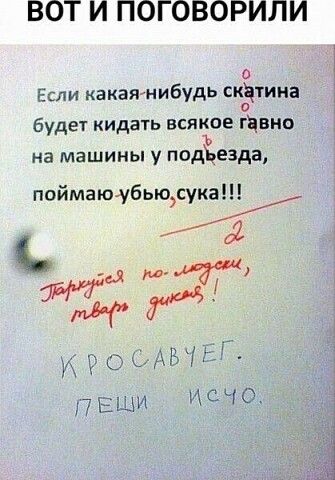 ВОТ И ПОГОВОРИЛИ
о
Если какая-нибудь скатина
о
будет кидать всякое гавно
ъ
на машины у подьезда,
поймаю-убью,сука!!!
2
Паркуйся по-людски,
тварь дикая!
КРОСАВЧЕГ.
ПЕШИ ИСЧО.